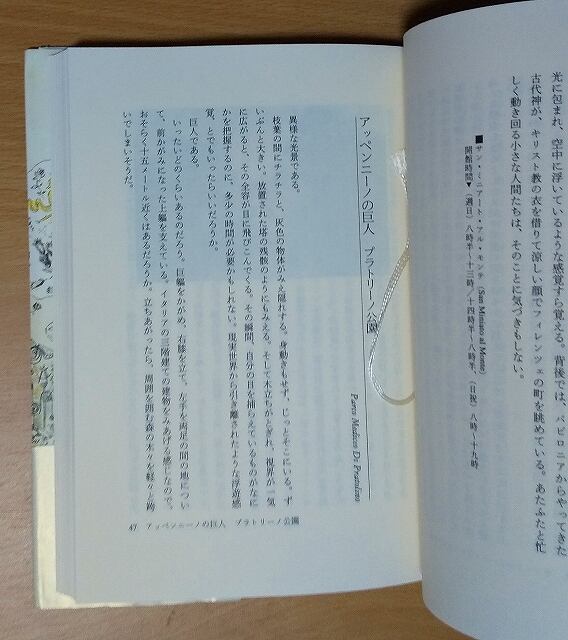 光に包まれ、空中に浮いているような感覚すら覚える。背後では、バビロニアからやってきた
古代神が、キリスト教の衣を借りて涼しい顔でフィレンツェの町を眺めている。あたふたと忙
しく動き回る小さな人間たちは、そのことに気づきもしない。
■サン・ミニアート・アル・モンテ (San Miniato al Monte)
開館時間▼(週日)八時半〜十三時/十四時半〜八時半、(日祝)八時〜十九時
アッペンニーノの巨人 プラトリーノ公園
Parco Mediceo Di Pratolino
異様な光景である。
枝葉の間にチラチラと、灰色の物体がみえ隠れする。身動きもせず、じっとそこにいる。ず
いぶんと大きい。放置された塔の残骸のようにもみえる。そして木立ちがとぎれ、視界が一気
に広がると、その全容が目に飛びこんでくる。その瞬間、自分の目を捕らえているものがなに
かを把握するのに、多少の時間が必要かもしれない。現実世界から引き離されたような浮遊感
覚、とでもいったらいいだろうか。
巨人である。
いったいどのくらいあるのだろう。巨軀をかがめ、右膝を立て、左手を両足の間の地につい
て、前かがみになった上軀を支えている。イタリアの三階建ての建物をみあげる感じなので、
おそらく十五メートル近くはあるだろうか。立ちあがったら、周囲を囲む森の木々を軽々と跨
いでしまいそうだ。
47 アッペンニーノの巨人 プラトリーノ公園